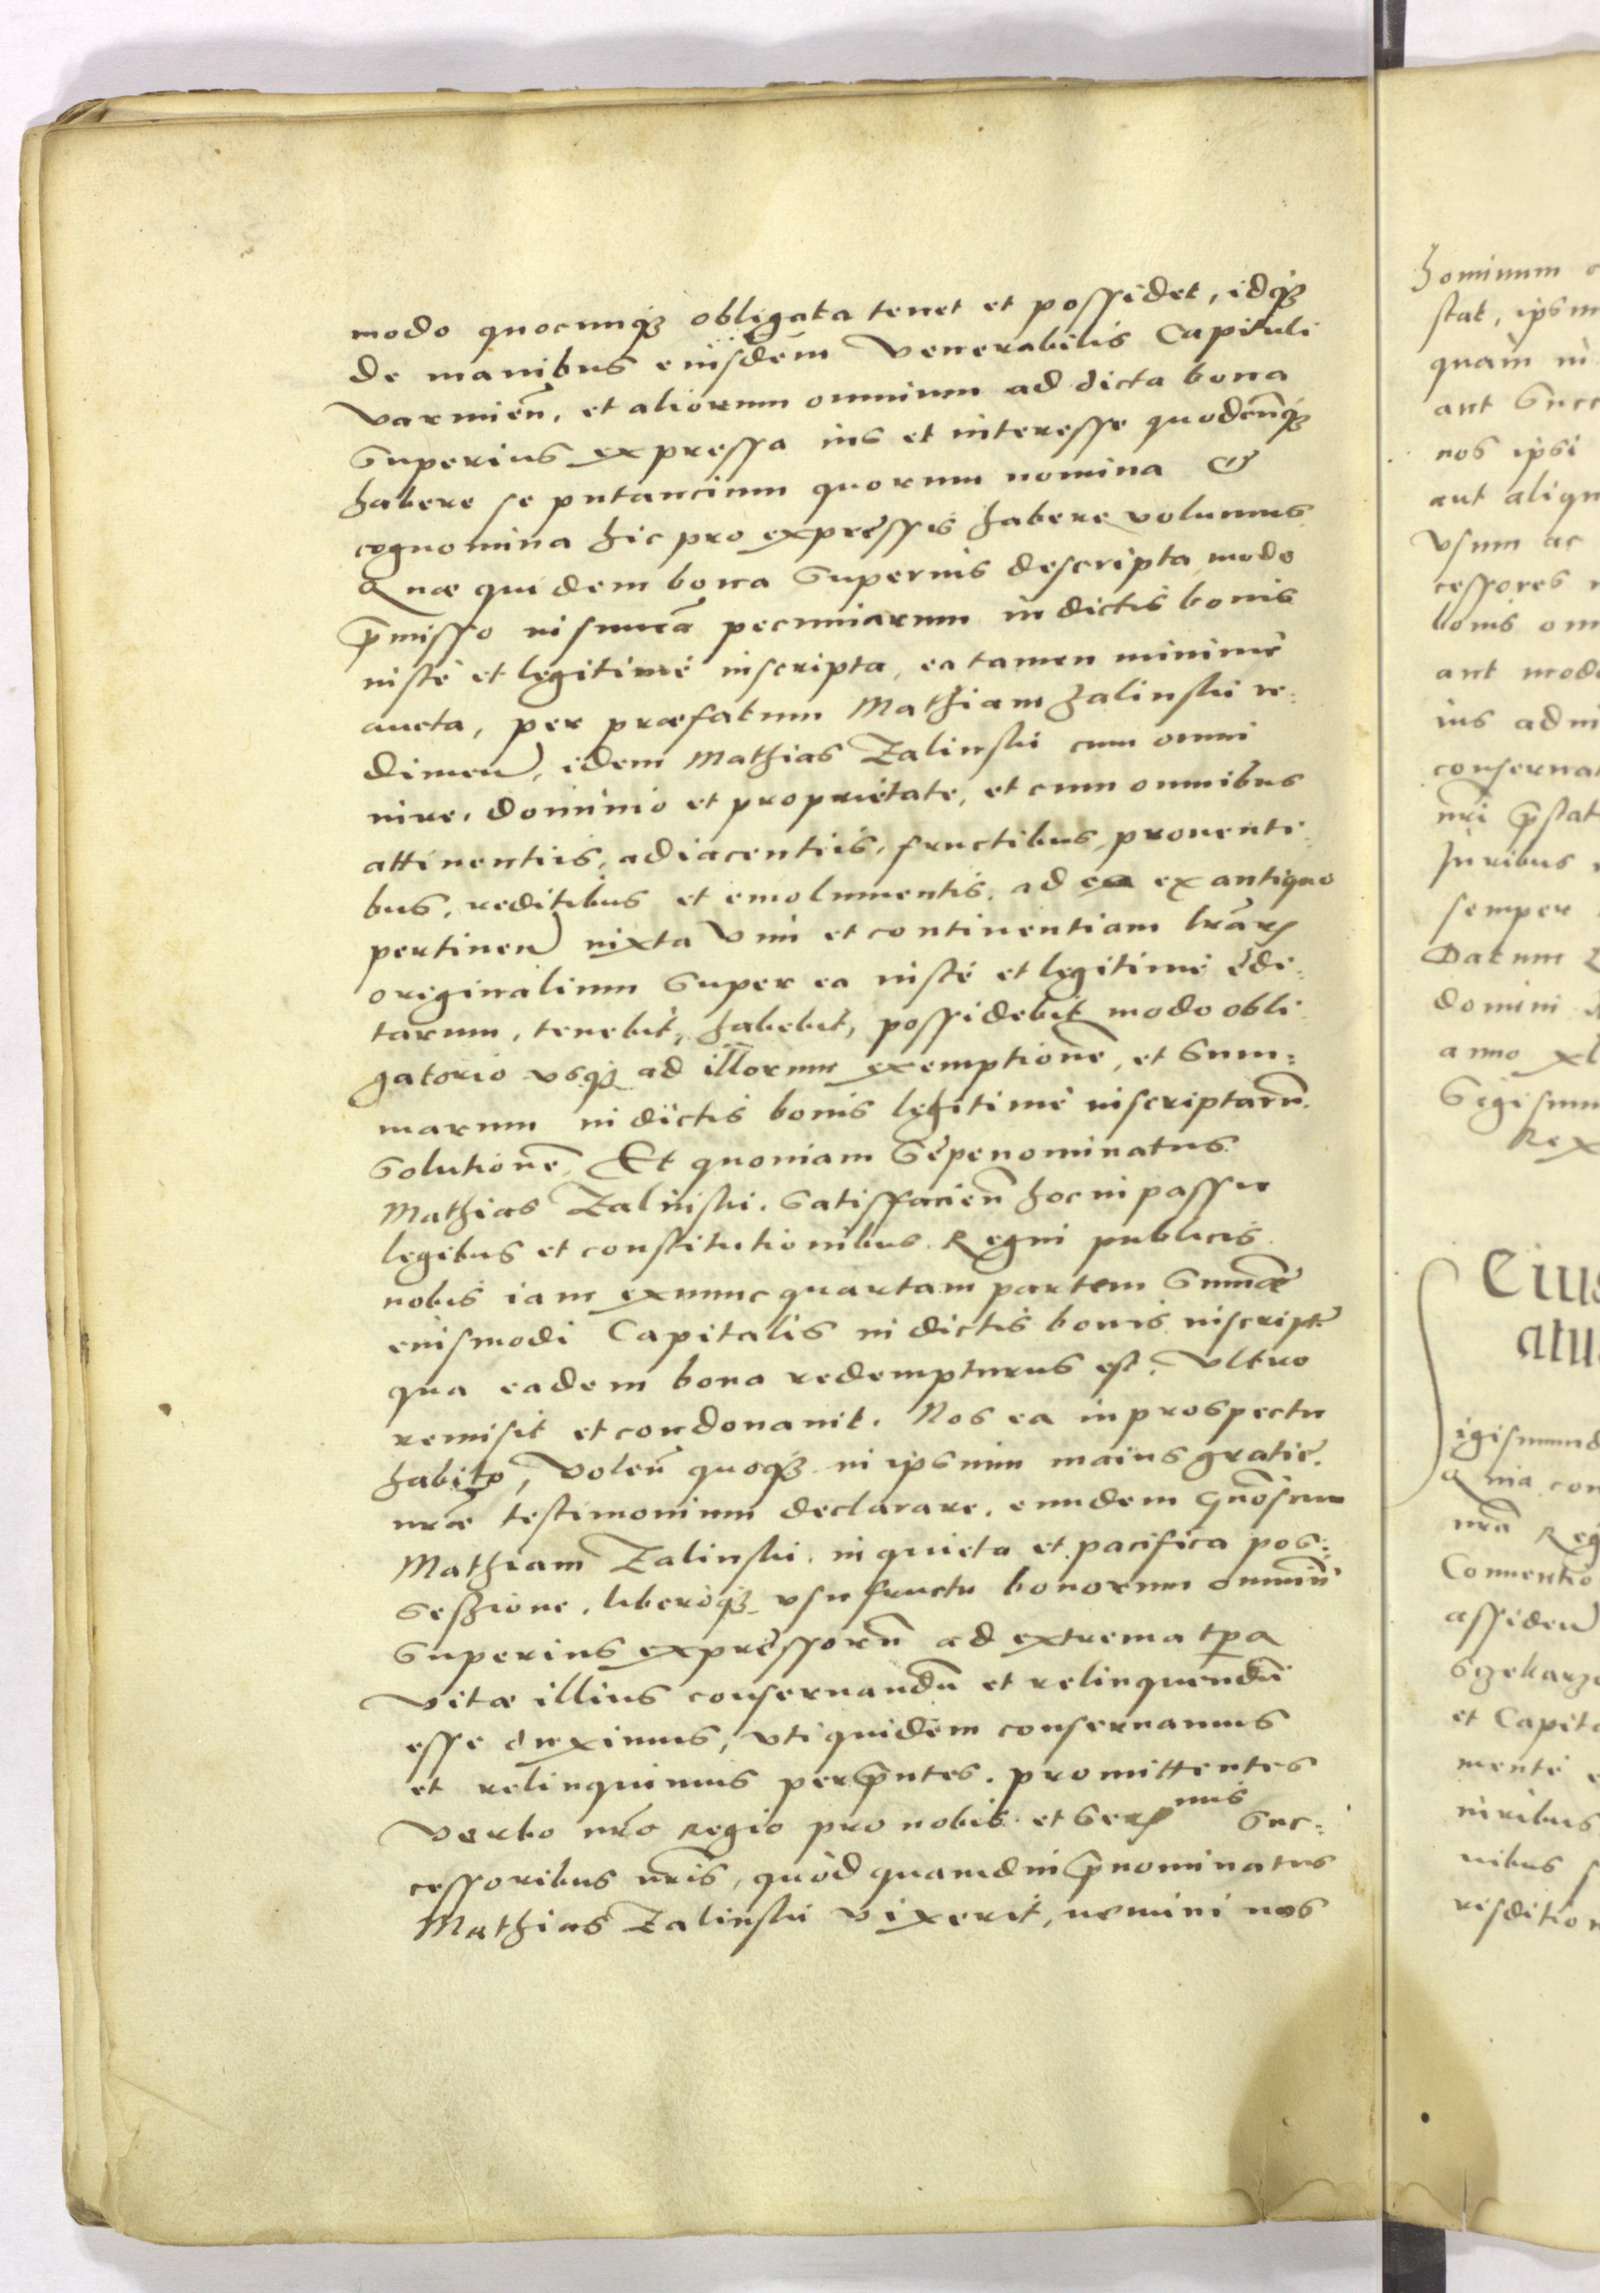 modo quocunq obligata tenet et possidet, idq
de manibus eiusdem Venerabilis Capituli
Varmien̄, et aliorum omnium ad dicta bona
superius expressa ius et interesse quodcunq
habere se putancium quorum nomina &
cognomina hic pro expressis habere volumus
Quæ quidem bona superius descripta modo
p̄misso in sum̄a pecuniarum in dictis bonis
iustè et legitimè inscripta, ea tamen minimè
aucta, per præfatum Mathiam Zalinski re-
dimen̄, idem Mathias Zalinski cum omni
iure, dominio et proprietate, et cum omnibus
attinentiis, adiacentiis, fructibus, prouenti-
bus, reditibus et emolumentis, ad ea ex antiquo
pertinen̄ iuxta vim et continentiam lr̄arum
originalium super ea iustè et legitimè edi-
tarum, tenebit, habebit, possidebit modo obli-
gatorio usq ad illorum exemptionē, et sum-
marum in dictis bonis legitimè inscriptarū
solutionē. Et quoniam sępenominatus
Mathias Zalinski, satisfacien̄ hoc in passu
legibus et constitutionibus Regni publicis
nobis iam exnunc quartam partem sum̄æ
eiusmodi Capitalis in dictis bonis inscriptę
qua eadem bona redempturus est, vltro
remisit et condonauit. Nos ea in prospectu
habito, Volen̄ quoq in ipsum maius gratię
nr̄æ testimonium declarare, eundem Gn̄osum
Mathiam Zalinski in quieta et pacifica pos-
sessione, liberoq vsufructu bonorum omniū
superius expressorū ad extrema tp̄a
Vitæ illius conseruandū et relinquendū
esse duximus, vti quidem conseruamus
et relinquimus per p̄ntes. promittentes
Verbo nr̄o Regio pro nobis et Ser̄mis Suc-
cessoribus nr̄is, quòd quamdiu p̄nominatus
Mathias Zalinski vixerit, nemini nos
hominum
stat, ipsum
quàm in
aut Succ
nos ipsi
aut aliqu
Vsum ac
cessores
bonis om
aut modo
ius adm
conseruat
nr̄i p̄stat
Juribus
semper
Datum
domini
anno xl
Sigismu
Rex
Eius
atu
igismund
Quia con
nr̄a Reg
Conuentio
assiden̄
et Capit
mente
iuribus
nibus
risdition